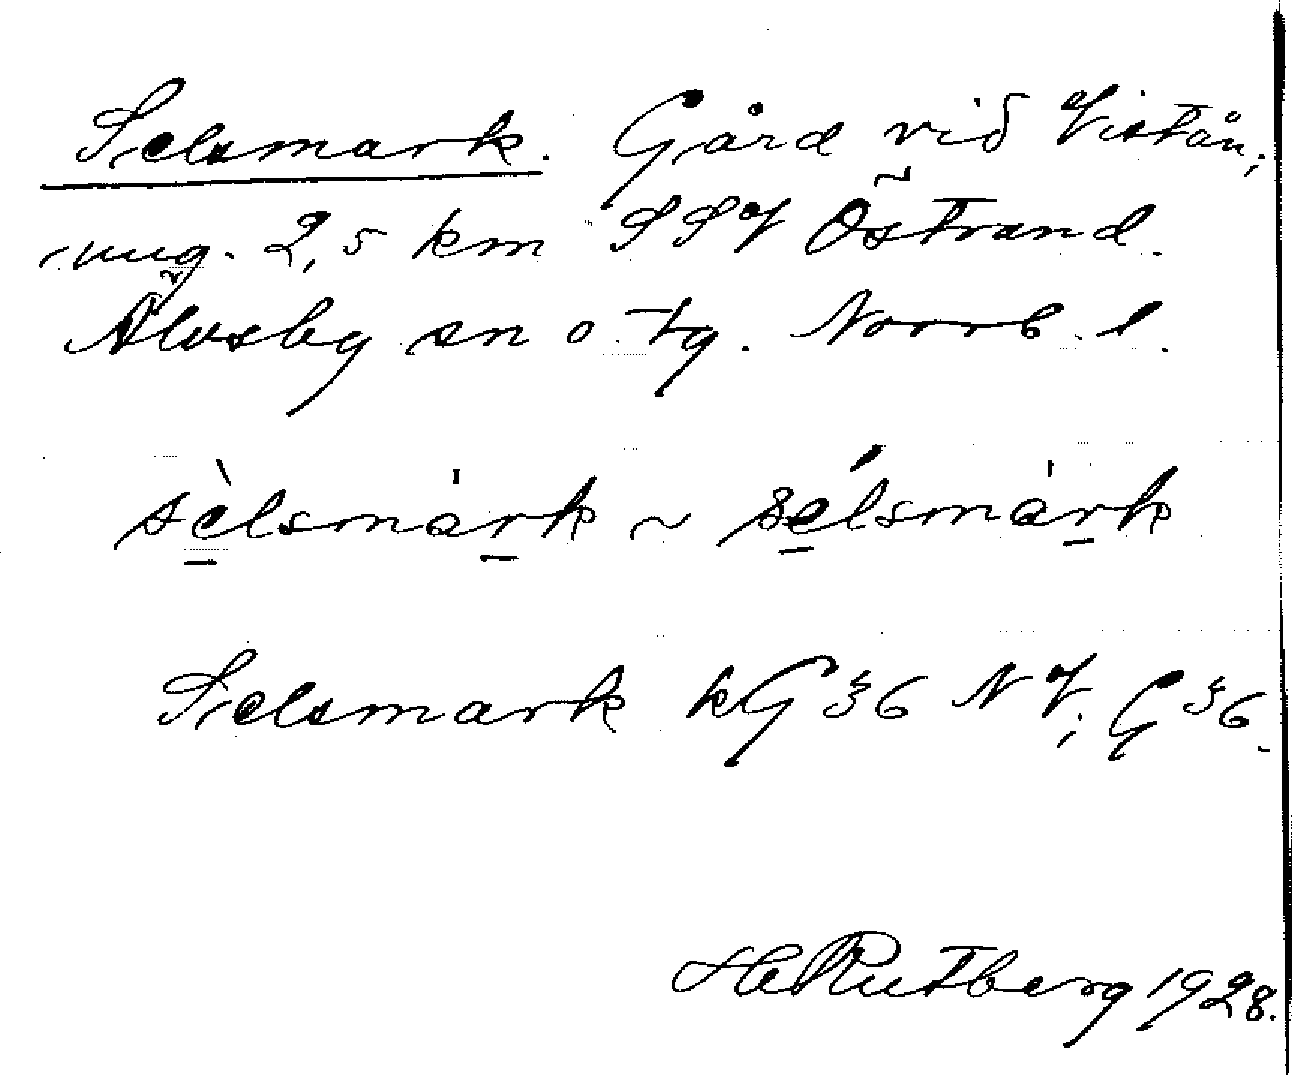 Selsmark. Gård vid Vistån,
ung. 2,5 km SSV Östrand.
Älvsby sn o. tg. Norrb. l.
sèlsmàrk ~ sélsmàrk
Selsmark kG 36 NV; G 36.
H Rutberg 1928.